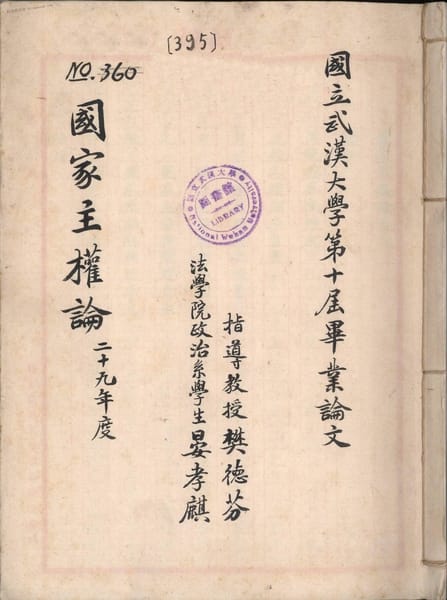 [395]
國立武漢大學第十屆畢業論文
指導教授樊德芬
法學院政治系學生晏孝麒
NO. 360
國家主權論
二十九年度
國立武漢大學
圖書館
LIBRARY
National Wuhan University